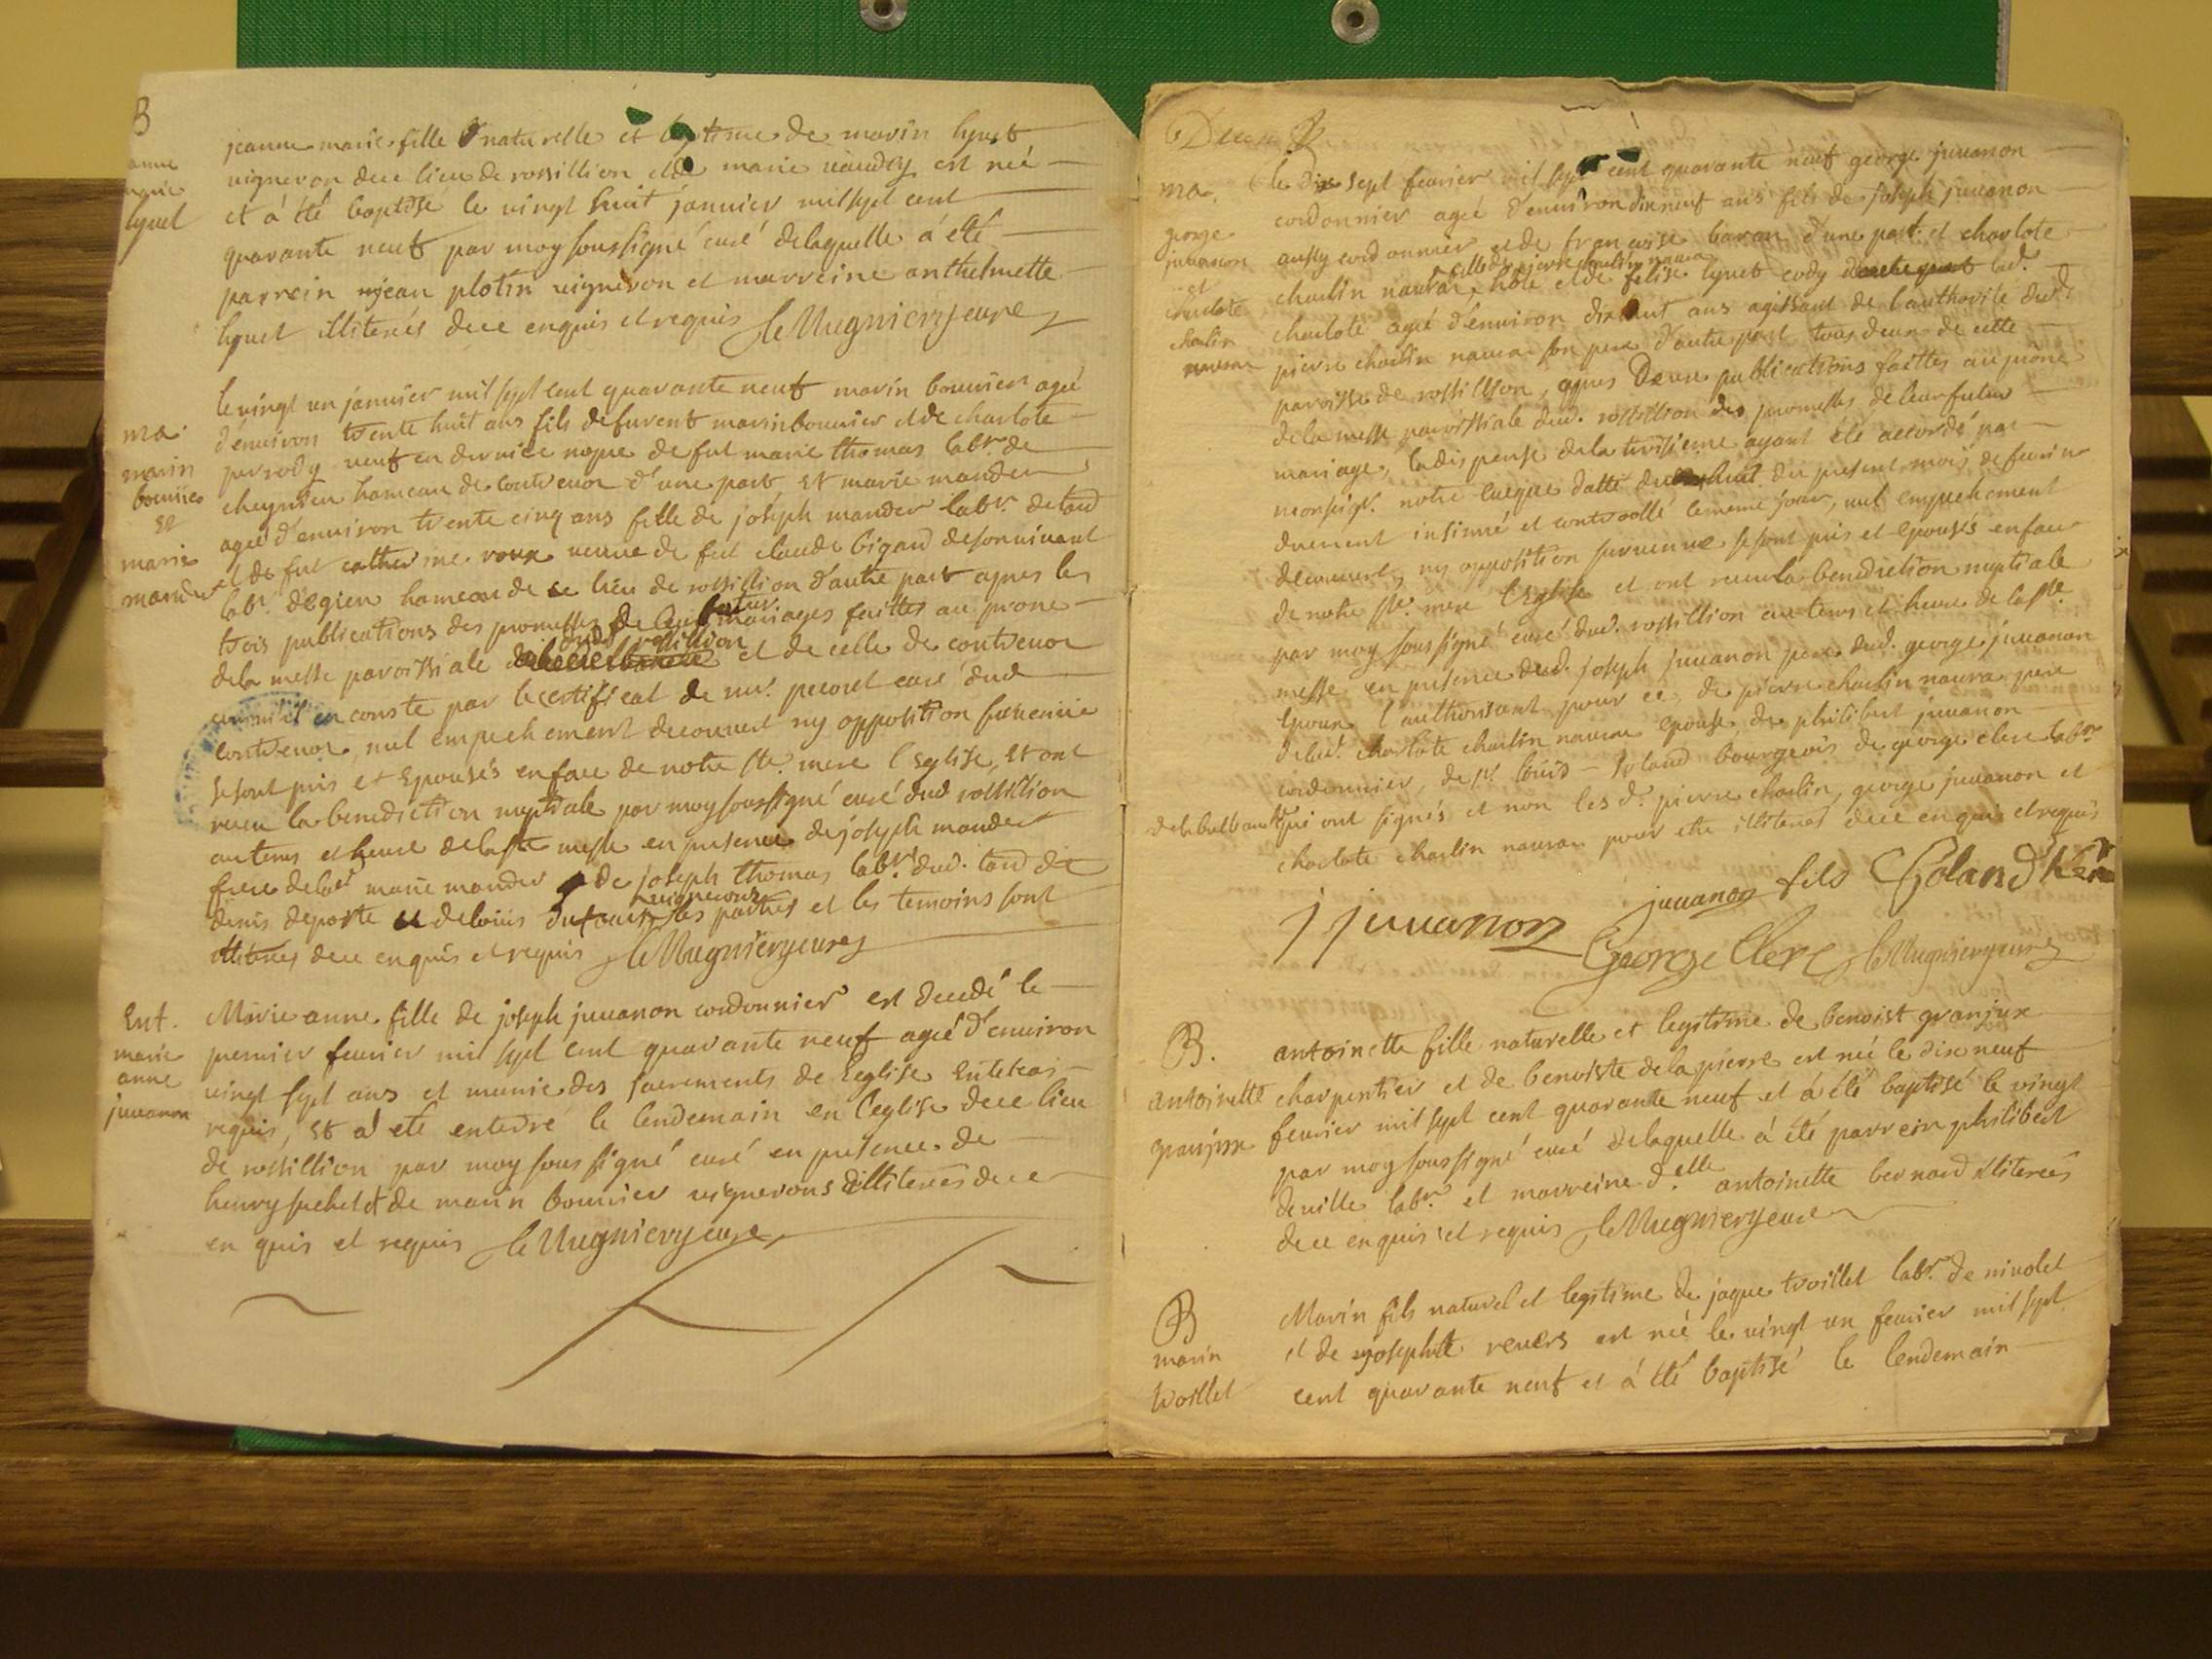 B
anne
marie
lynet
jeanne marie fille naturelle et legitime de marin lynet
vigneron de ce lieu de rossillion et de marie vaudey est neé
et á été baptise le vingt huit janvier mil sept cent
quarante neuf par moy soussigné curé delaquelle á été
parrein jean plotin vigneron et marreine anthelmette
lynet illiterés de ce enquis et requis Le Mugniery curé
ma.
marin
bouvier
et
marie
mander
le vingt un janvier mil sept cent quarante neuf marin bouvier ageé
d'environ trente huit ans fils de furent marin bouvier et de charlote
perrody veuf en derniee nopce de fut marie thomas labr. de
cheynieu hameau de contrevor d'une part et marie mander
ageé d'environ trente cinq ans fille de joseph mander labr. de tard
et de fut catherine roux veuve de fut claude bigard de son vivant
labr. d'egieu hameau de ce lieu de rossillion d'autre part apres les
trois publications des promesses de leur futur mariages faittes au prone
de la messe paroissiale dud. rossillion et de celle de contrevor
comm'il en conste par le certificat de mr. curé dud
contrevor, nul empechement decouvert ny opposition survenue
se sont pris et epousés en face de notre ste. mere l'eglise, et ont
receu la benediction nuptiale par moy soussigné curé dud rossillion
au tems et heure de la ste messe en presence de joseph mander
frere de lad marie mander de joseph thomas labrs. dud. tard de
denis deporte et de louis dufour vignerons les parties et les temoins sont
illiterés de ce enquis et requis Le Mugniery curé
Ent.
marie
anne
juvanon
Marie anne fille de joseph juvanon cordonnier est decedé le
premier fevrier mil sept cent quarante neuf ageé d'environ
vingt sept ans et munie des sacrements de l'eglise en tel cas
requis, et á eté enterré le lendemain en l'eglise de ce lieu
de rossillion par moy soussigné curé en presence de
henry suchet et de marin bouvier vignerons illiterés de ce
en quis et requis Le Mugniery curé
ma.
george
juvanon
et
charlote
charlin
navran
le dix sept fevrier mil sept cent quarante neuf george juvanon
cordonnier ageé d'environ dix neuf ans fils de joseph juvanon
aussy cordonnier et de françoise baron d'une part et charlote
charlin navran, fille de pierre charlin navran hôte et de felise lynet lad.
charlote ageé d'environ dix huit ans agissant de l'authorité dud.
pierre charlin navran son pere d'autre part tous deux de cette
paroisse de rossillion, apres deux publications faittes au prône
de la messe paroissiale dud. rossillion des promesses de leur futur
mariage, la dispense de la troisieme ayant été accordé par
monseigr. notre eveque datté du huit du present mois de fevrier
duement insinué et controllé le meme jour, nul empechement
decouvert, ny opposition survenue se sont pris et epousés en face
de notre ste. mere l'eglise et ont receu la benediction nuptiale
par moy soussigné curé dud. rossillion au tems et heure de la ste.
messe en presence dud. joseph juvanon pere dud. george juvanon
epoux l'authorisant pour ce, de pierre charlin navran pere
de lad. charlote charlin navran epouse, de philibert juvanon
cordonnier, de sr. louis roland bourgeois de george clerc labr.
qui ont signés et non les d. pierre charlin, george juvanon et
charlote charlin navran pour etre illiterés de ce enquis et requis
j juvanon juvanon fils Roland
George Clerc Le Mugniery curé
B.
antoinette
granjux
antoinette fille naturelle et legitime de benoist granjux
charpentier et de benoiste delapierre est neé le dix neuf
fevrier mil sept cent quarante neuf et á été baptisé le vingt
par moy soussigné curé de laquelle á été parrein philibert
deville labr. et marreine d.elle antoinette bernard illiterés
de ce enquis et requis Le Mugniery curé
B
marin
troillet
Marin fils naturel et legitime de jaque troillet labr. de nivolet
et de josephte revers est neé le vingt un fevrier mil sept
cent quarante neuf et á été baptisé le lendemain